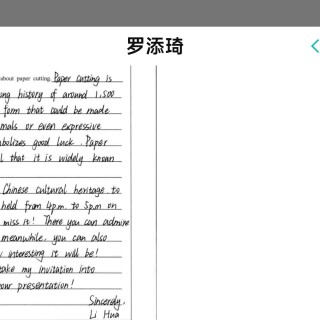 罗添琦
about paper cutting. Paper cutting is
ng history of around 1,500
form that could be made
mals or even expressive
bolizes good luck. Paper
l that it is widely known
Chinese cultural heritage to
held from 4p.m. to 5p.m on
miss it! There you can admire
meanwhile, you can also
interesting it will be!
take my invitation into
our presentation!
Sincerely,
Li Hua